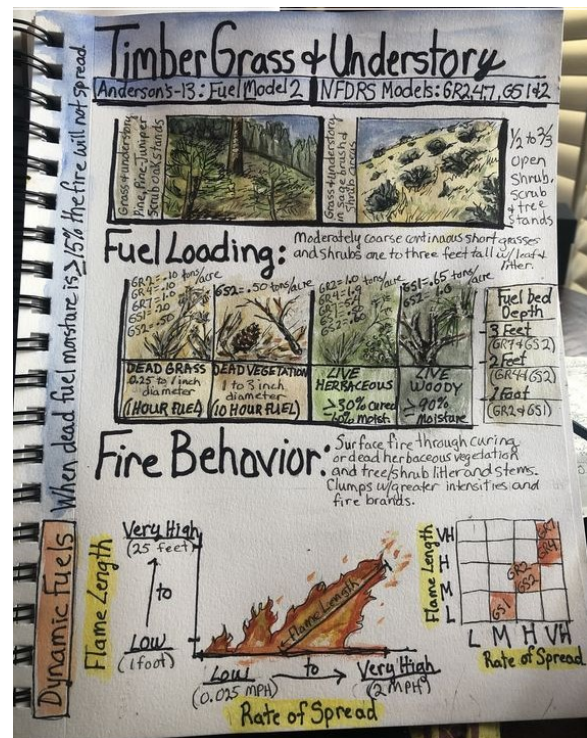 Timber Grass & Understory
Anderson's-13: Fuel Model 2
NFDRS Models: GR2,4,7, GS1&2
When dead fuel moisture is ≥15% the fire will not spread
Grass & understory
Pine, Pine-Juniper
Scrub oak stands
Grass & understory
in sage brush &
Shrub areas
1/2 to 2/3
open
shrub,
scrub
& tree
stands
Fuel Loading:
Moderately coarse continuous short grasses
and shrubs one to three feet tall w/ leaf &
litter.
GR2=.10 tons/acre
GR4=.10
GR7=1.0
GS1=.20
GS2=.50
GS2=.50 tons/acre
GR2=1.0 tons/acre
GR4=1.9
GS1=.65 tons/acre
GS2=1.0
DEAD GRASS
0.25 to 1 inch
diameter
(1 HOUR FUEL)
DEAD VEGETATION
1 to 3 inch
diameter
(10 HOUR FUEL)
LIVE
HERBACEOUS
≥30% cured
60% moist.
LIVE
WOODY
90%
Moisture
Fuel bed
Depth
3 Feet
(GR7&GS2)
2 Feet
(GR4&GS2)
1 Foot
(GR2&GS1)
Fire Behavior:
Surface fire through curing
or dead herbaceous vegetation
and tree/shrub litter and stems.
Clumps w/greater intensities and
fire brands.
Dynamic Fuels
Flame Length
Very High
(25 feet)
to
Low
(1 foot)
Flame Length
Low
(0.025 MPH)
to
Very High
(2 MPH)
Rate of Spread
Flame Length
VH
H
M
L
GR7
GR4
GR2
GS2
GS1
L M H VH
Rate of Spread